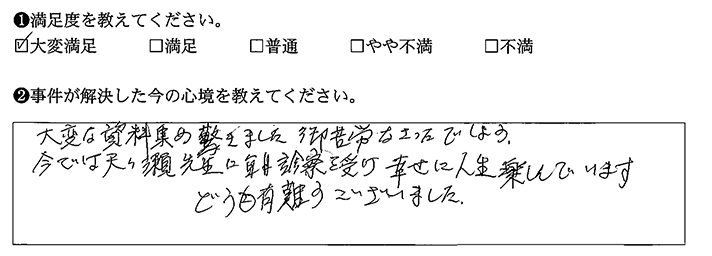 ❶満足度を教えてください。
☑大変満足 □満足 □普通 □やや不満 □不満
❷事件が解決した今の心境を教えてください。
大変な資料集め驚きました 御苦労な立場でしょう。
今では天ヶ瀬先生に診察を受け 幸せに人生楽しんでいます
どうも有難うございました。